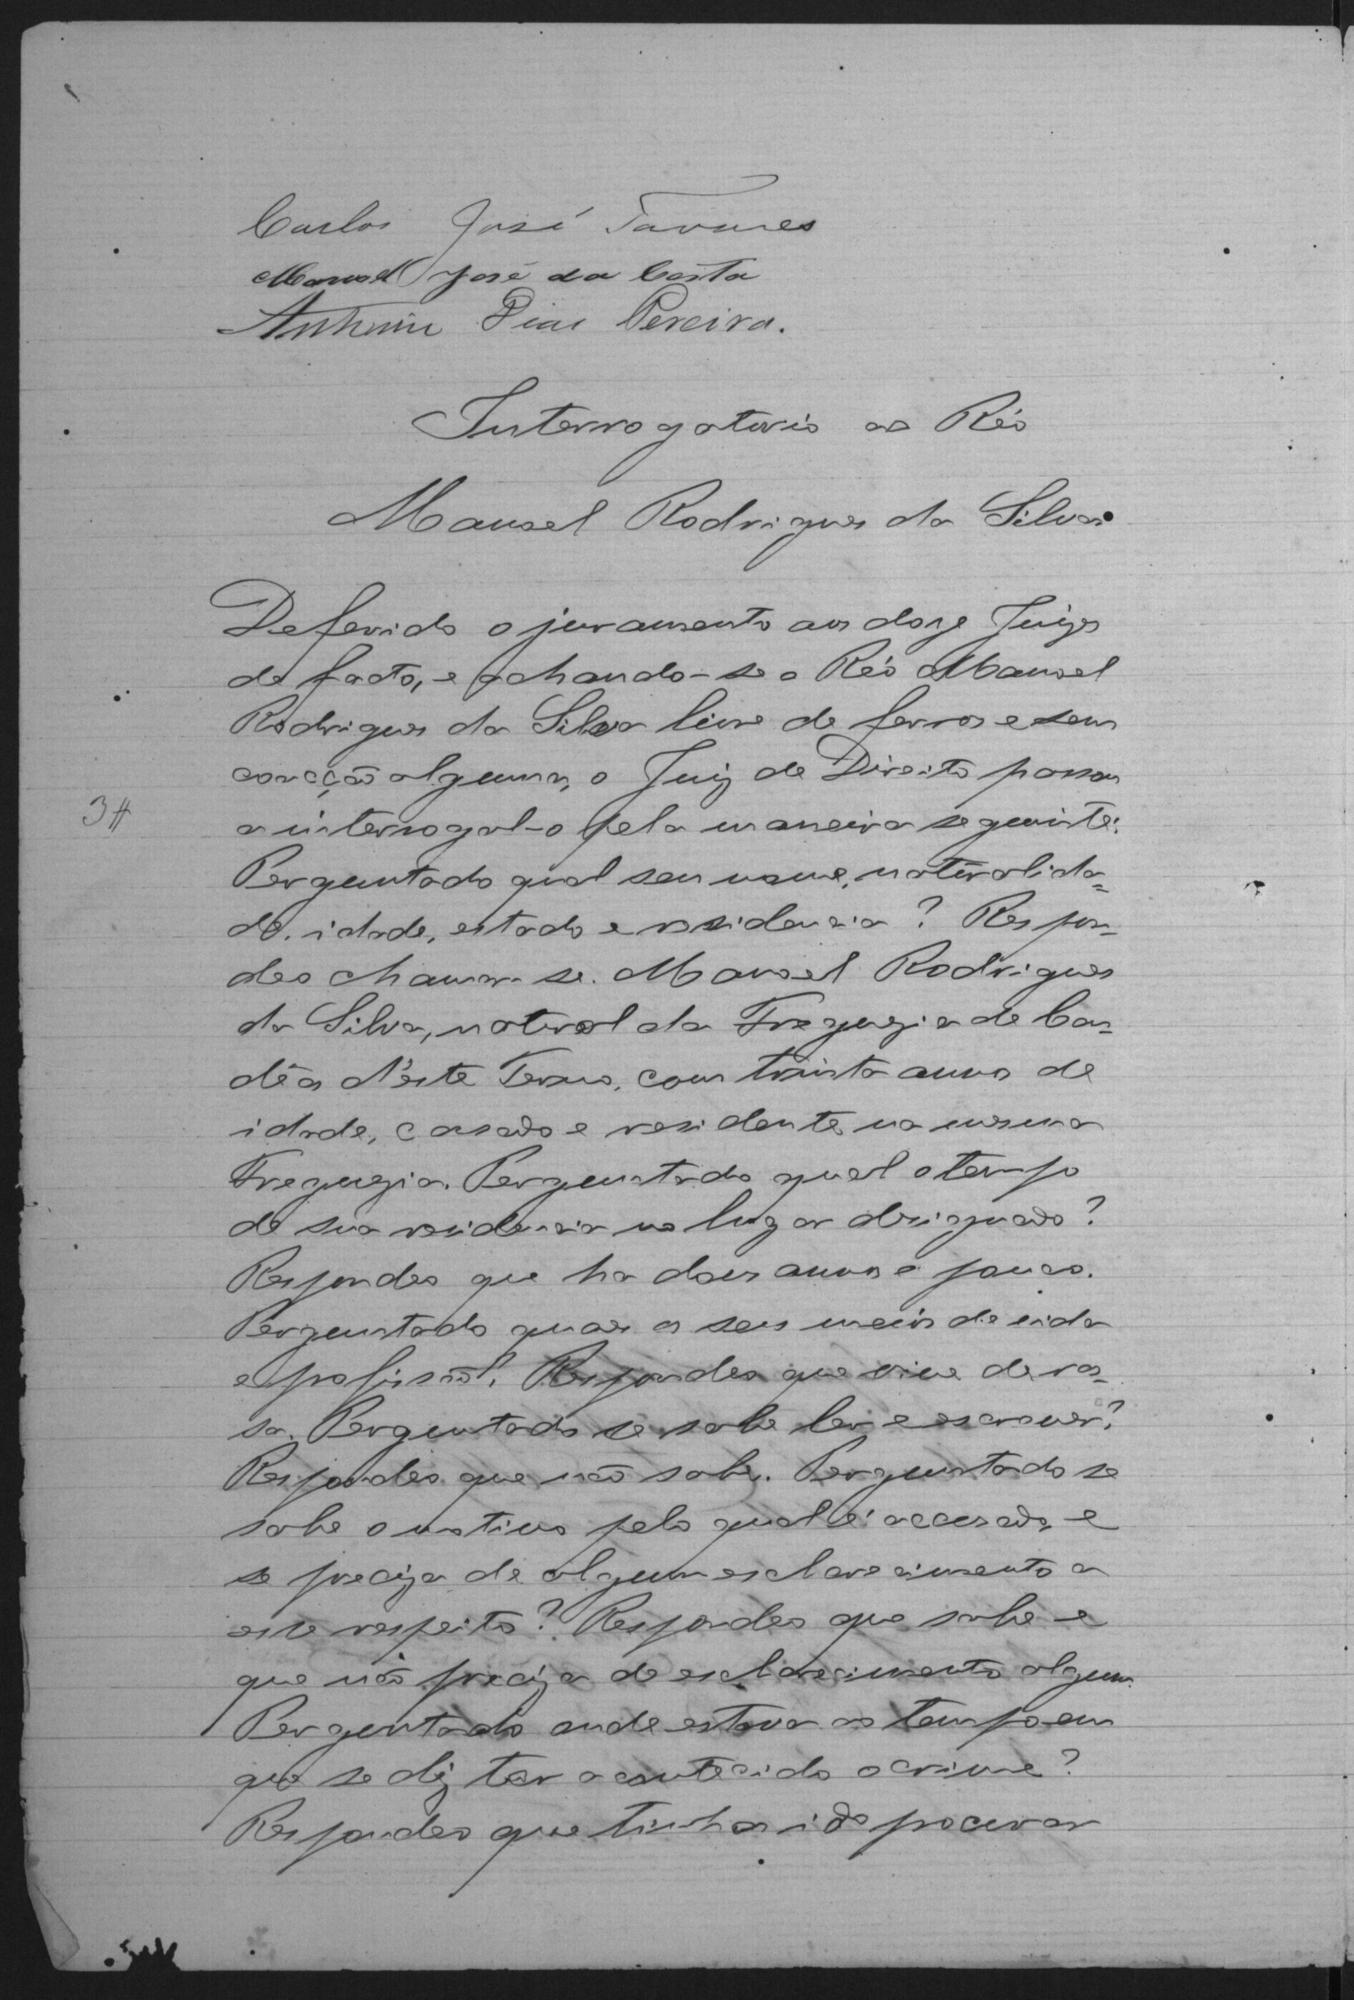 Carlos José Tavares
Manoel José da Costa
Antonio Dias Pereira.
Interrogatorio ao Réo
Manoel Rodrigues da Silva.
Deferido o juramento aos doze Juizes
de facto, e achando-se o Réo Manoel
Rodrigues da Silva livre de ferros e sem
coacção alguma, o Juiz de Direito passou
a interrogal-o pela maneira seguinte:
3#
Perguntado qual seu nome, naturalida=
de, idade, estado e residencia? Respon=
deo chamar-se Manoel Rodrigues
da Silva, natural da Freguezia de Can=
dêa d'este Termo, com trinta annos de
idade, casado e residente na mesma
Freguezia. Perguntado qual o tempo
de sua residencia no lugar designado?
Respondeo que ha dous annos e pouco.
Perguntado quaes os seus meios de vida
e profissão? Respondeo que vive de ro=
sa. Perguntado se sabe ler e escrever?
Respondeo que não sabe. Perguntado se
sabe o motivo pelo qual é accusado, e
se preciza de algum esclarecimento a
este respeito? Respondeo que sabe e
que não preciza de esclarecimento algum.
Perguntado onde estava ao tempo em
que se diz ter acontecido o crime?
Respondeo que tinha ido procurar